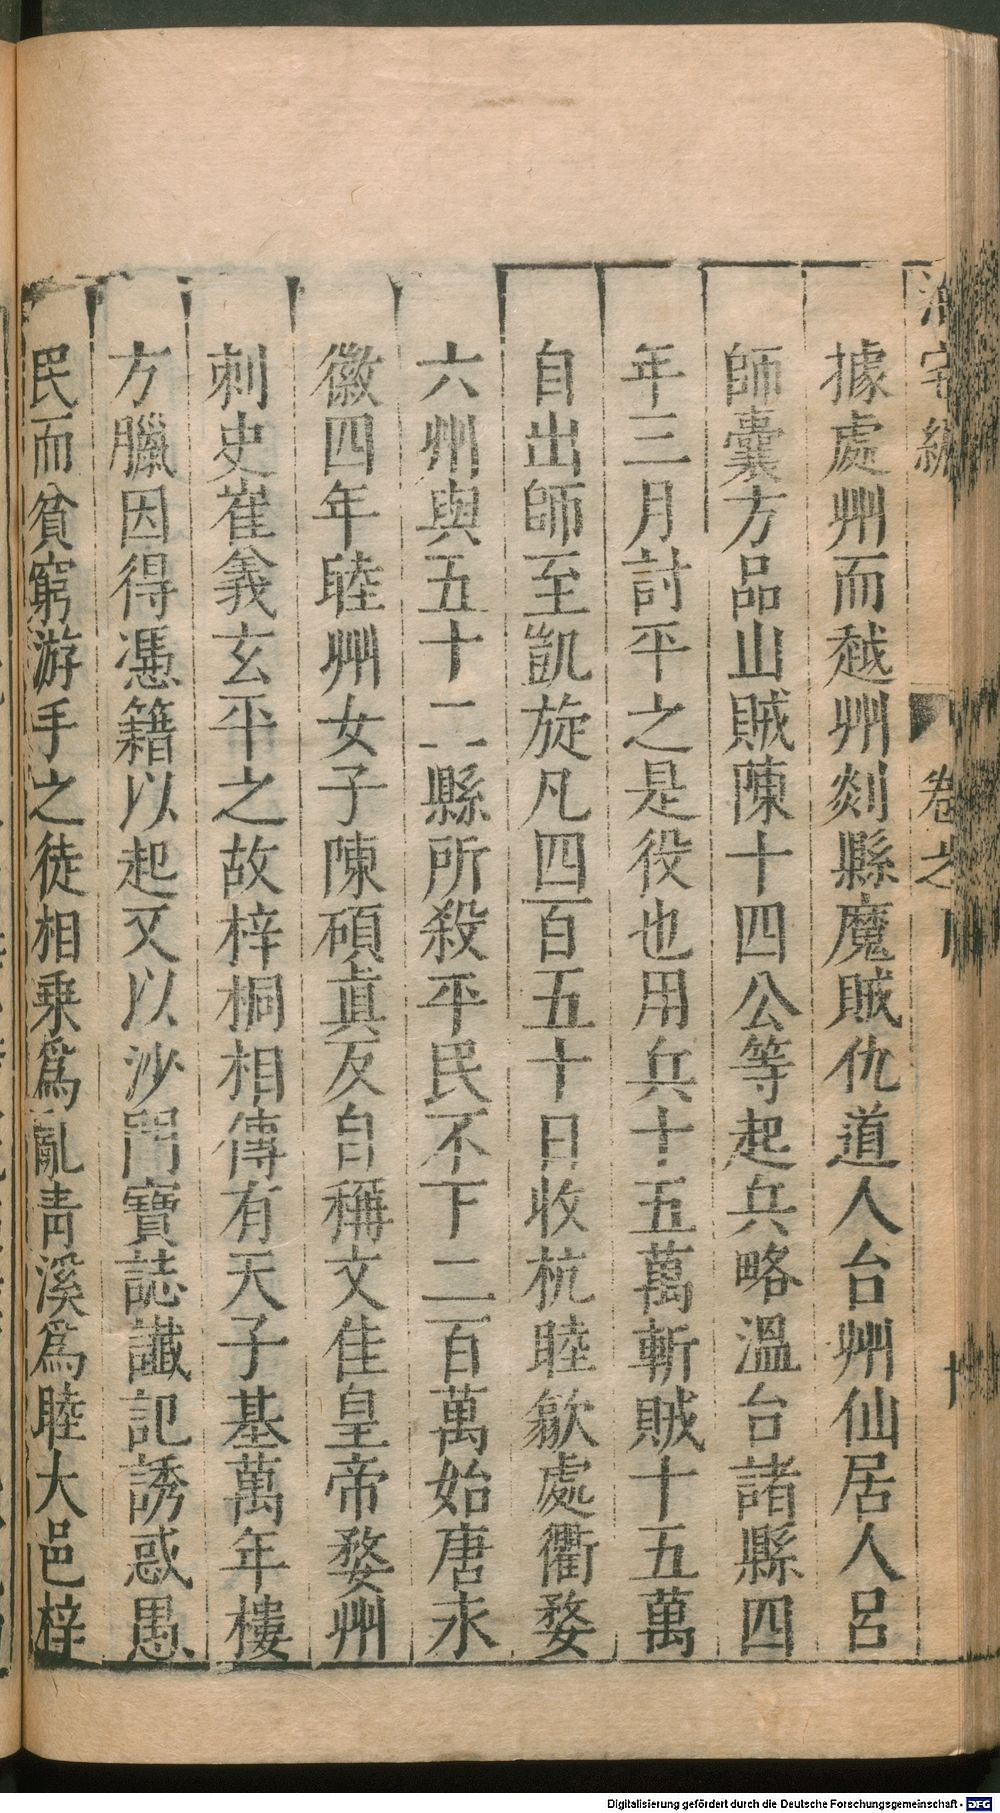 泊宅編 卷之 十
據處州而越州剡縣魔賊仇道人台州仙居人呂
師囊方品山賊陳十四公等起兵略溫台諸縣四
年三月討平之是役也用兵十五萬斬賊十五萬
自出師至凱旋凡四百五十日收杭睦歙處衢婺
六州與五十二縣所殺平民不下二百萬始唐永
徽四年睦州女子陳碩眞反自稱文佳皇帝婺州
刺史崔義玄平之故梓桐相傳有天子基萬年樓
方臘因得憑籍以起又以沙門寶誌讖記誘惑愚
民而貧窮游手之徒相乗爲亂青溪爲睦大邑梓
Digitalisierung gefördert durch die Deutsche Forschungsgemeinschaft - DFG